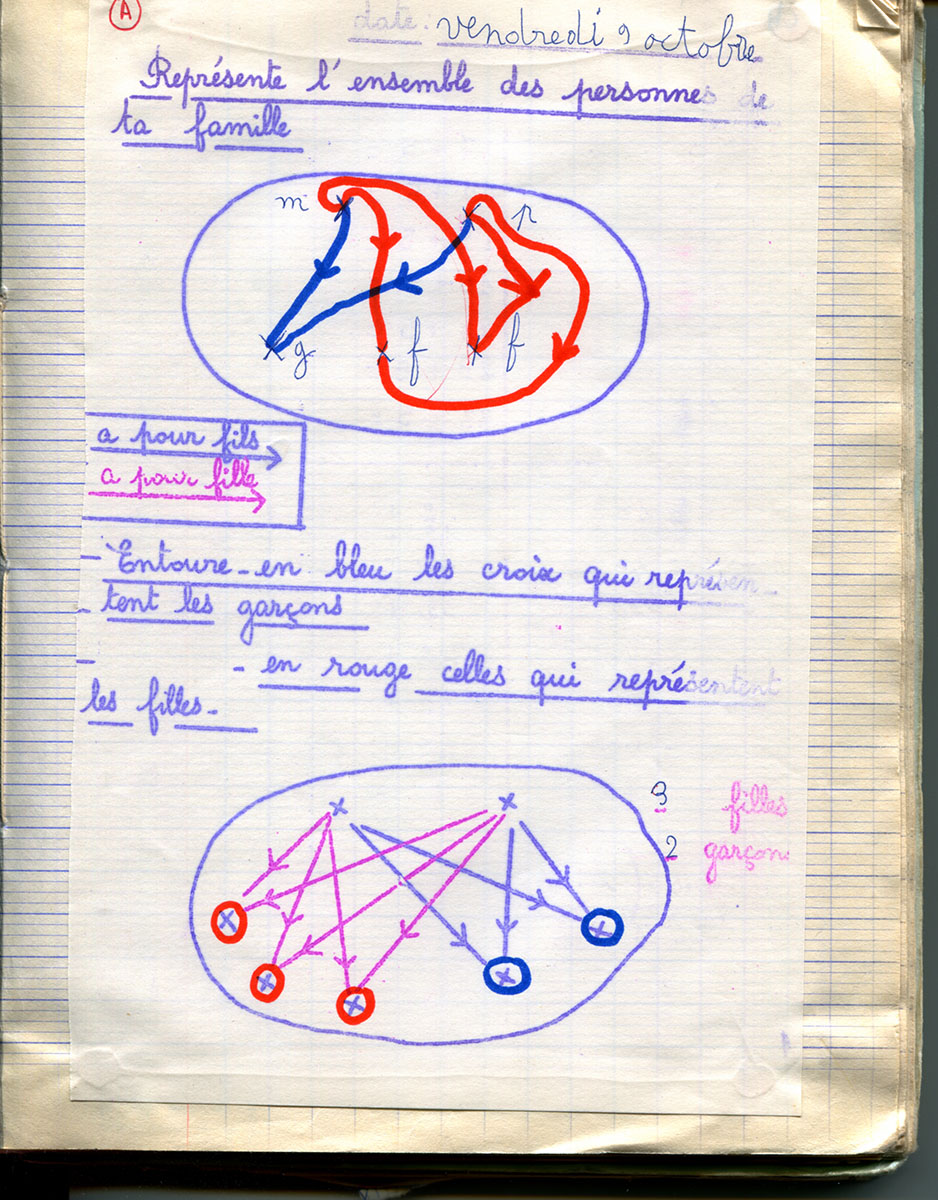 A
date: vendredi 9 octobre
Représente l'ensemble des personnes de
ta famille
m
p
g
f
f
a pour fils
a pour fille
- Entoure - en bleu les croix qui représen-
- tent les garçons
- - en rouge celles qui représentent
les filles.
3 filles
2 garçons